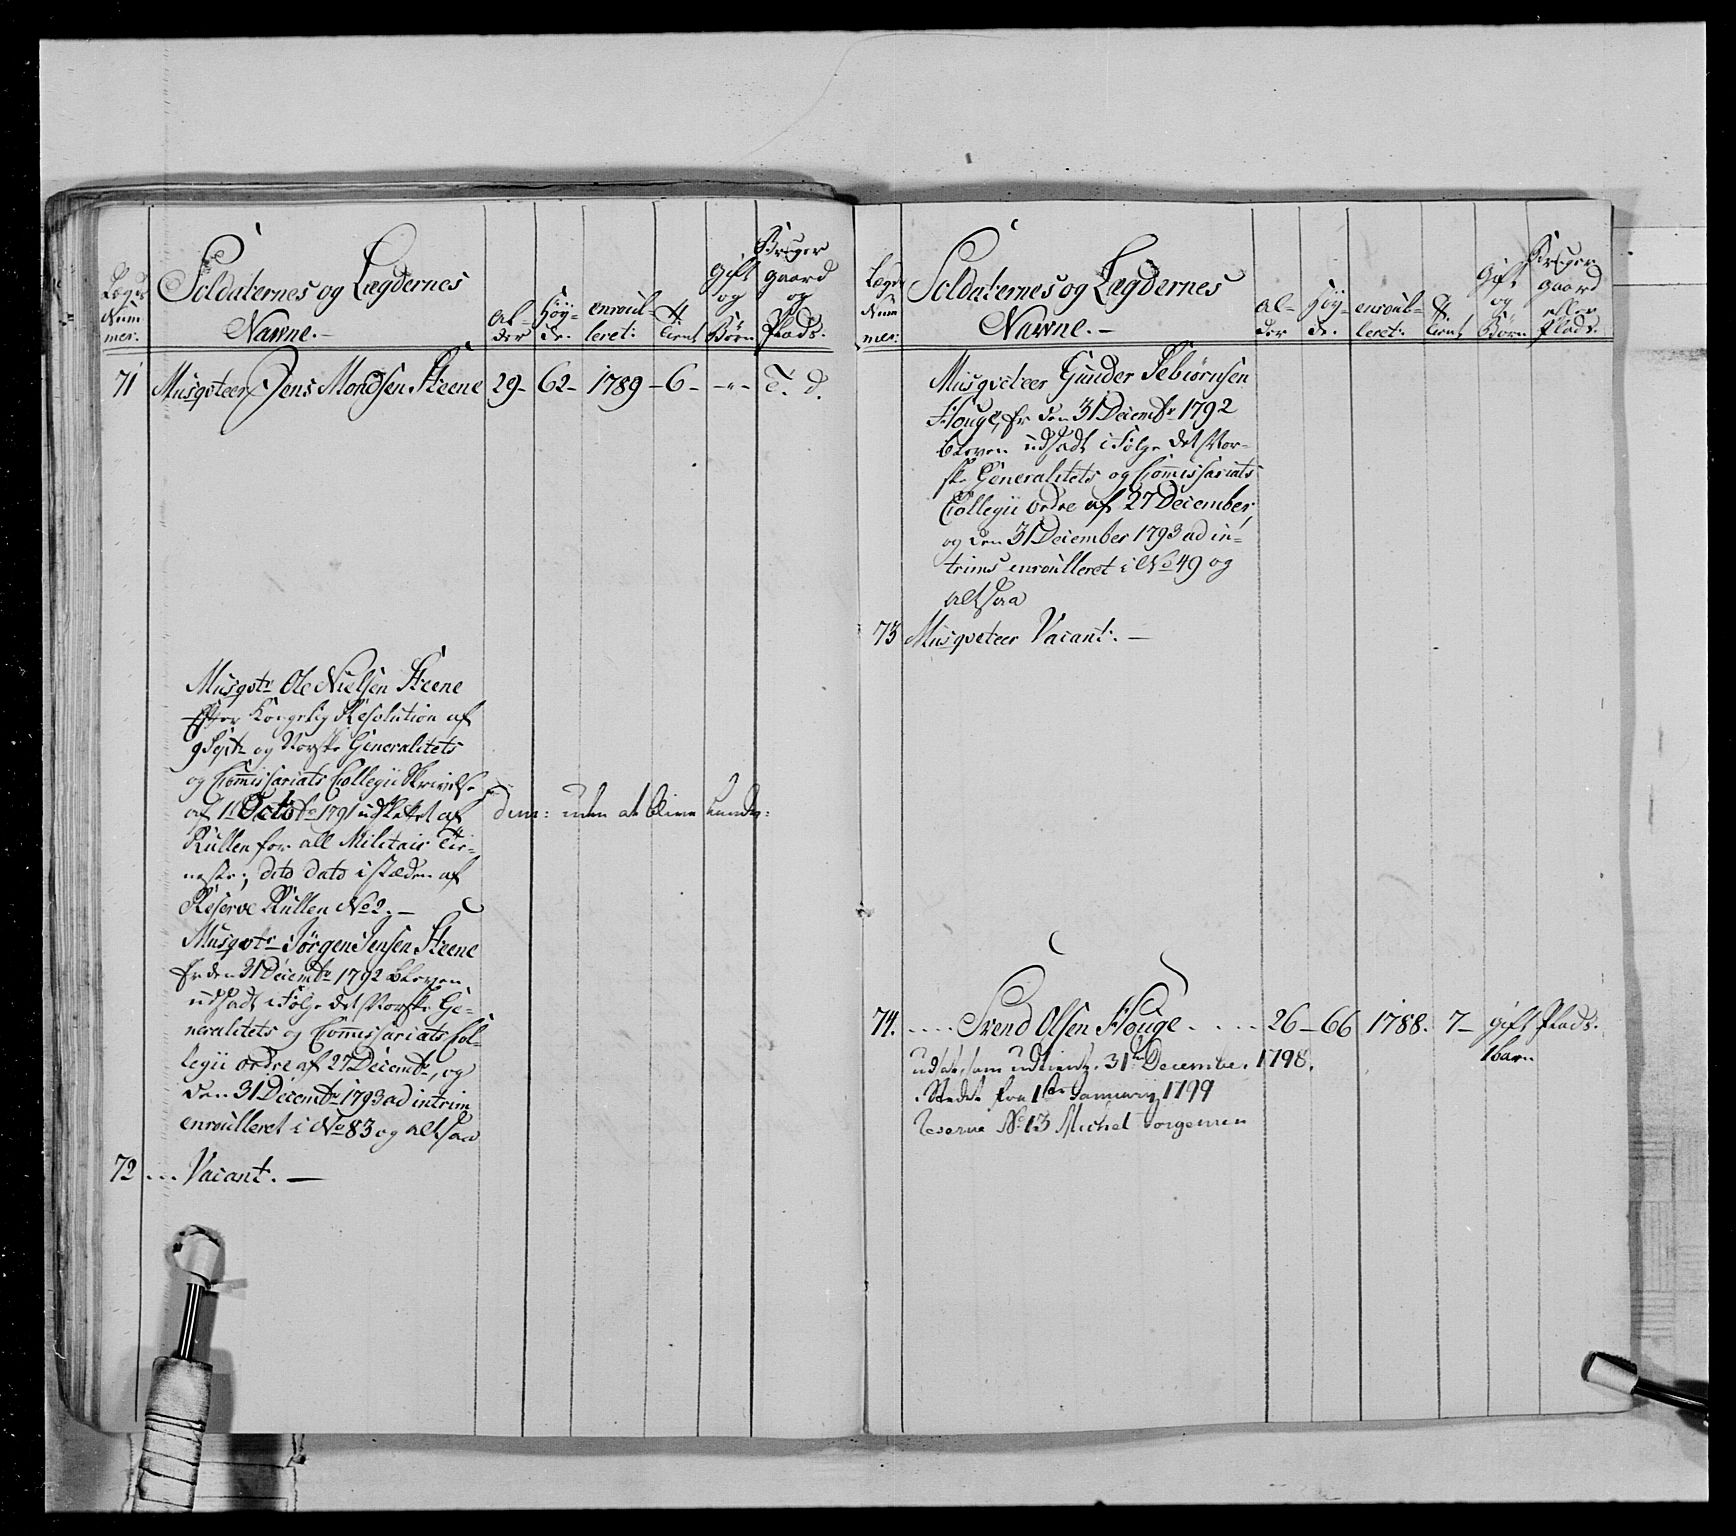 Lægds Nummer: Soldaternes og Lægdernes Nawne. – Alder Høyde. enroulleret: Aar tient Gift og Børn Bruger gaard og Plads.
71 Musqveteer Jens Mondsen Steene 29– 62– 1789 – 6 – –"– T. d.
Musqvtr Ole Nielsen Steene
efter Kongelig Resolution af
9 Sept: og Norske Generalitets
og Commissariats Collegii Skrivelse
af 11 Octobr 1791 udslettet af
Rullen for all Militair Tie-
neste; dito dato i stæden af
Reserve Rullen No 2. –
Musqvtr Jørgen Jensen Steene
er den 31 Decembr 1792 bleven
udsadt i Følge det Norske Ge-
neralitets og Commissariats Col-
legii ordre af 27 Decembr, og
den 31 Decembr 1793 ad intrim
enroulleret i No 83 og altsaa
72 ... Vacant. –
Lægds Nummer: Soldaternes og Lægdernes Nawne. – Alder Høyde. enroulleret: Aar tient Gift og Børn Bruger gaard eller Plads.
Musqveteer Gunder Sebiørnsen
Houge, er den 31 Decembr 1792
bleven udsadt i Følge det Nor-
ske Generalitets og Commissariats
Collegii ordre af 27 December,
og den 31 December 1793 ad in-
trims enroulleret i No 49 og
altsaa
73 Musqveteer Vacant. –
74. .... Svend Olsen Houge. ... 26 – 66 1788. 7 – gift Plads.
1 barn
udsat som udtient 31te Decembr. 1798.
i Stedet fra 1ste January 1799
Reserve No 13 Michel Jørgensen